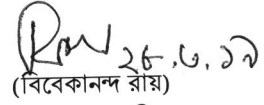 ২৮.৬.১৯
(বিবেকানন্দ রায়)